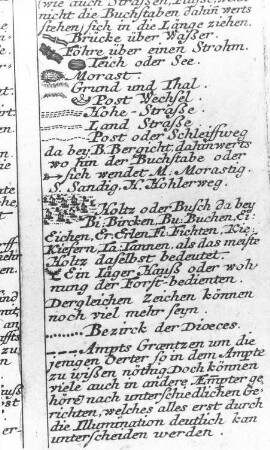 (wie auch Straßen, Flüße, wo
nicht die Buchstaben dahin werts
stehen) sich in die Länge ziehen.
Brücke über Waßer.
Fohre über einen Strohm.
Teich oder See.
Morast.
Grund und Thal.
Post Wechsel
Hohe-Straße.
Land Straße
Post oder Schleiffweg
da bey B. Bergicht dahinwerts
wo hin der Buchstabe oder
sich wendet M: Morastig.
S. Sandig. K. Kohlerweg.
Holtz oder Busch da bey
Bi: Bircken, Bu: Buchen, Ei:
Eichen, Er. Erlen Fi: Fichten, Kie:
Kiefern, Ta: Tannen, als das meiste
Holtz daselbst bedeutet.
Ein Jäger Hauß oder woh
nung der Forst-bedienten.
Dergleichen Zeichen können
noch viel mehr seyn.
Bezirck der Dioeces.
Ampts Græntzen um die
jenigen Oerter so in dem Ampte
zu wißen nöthig. Doch können
viele auch in andere Æmpter ge
höre) nach unterschiedlichen Ge
richten, welches alles erst durch
die Illumination deutlich kan
unterscheiden werden.